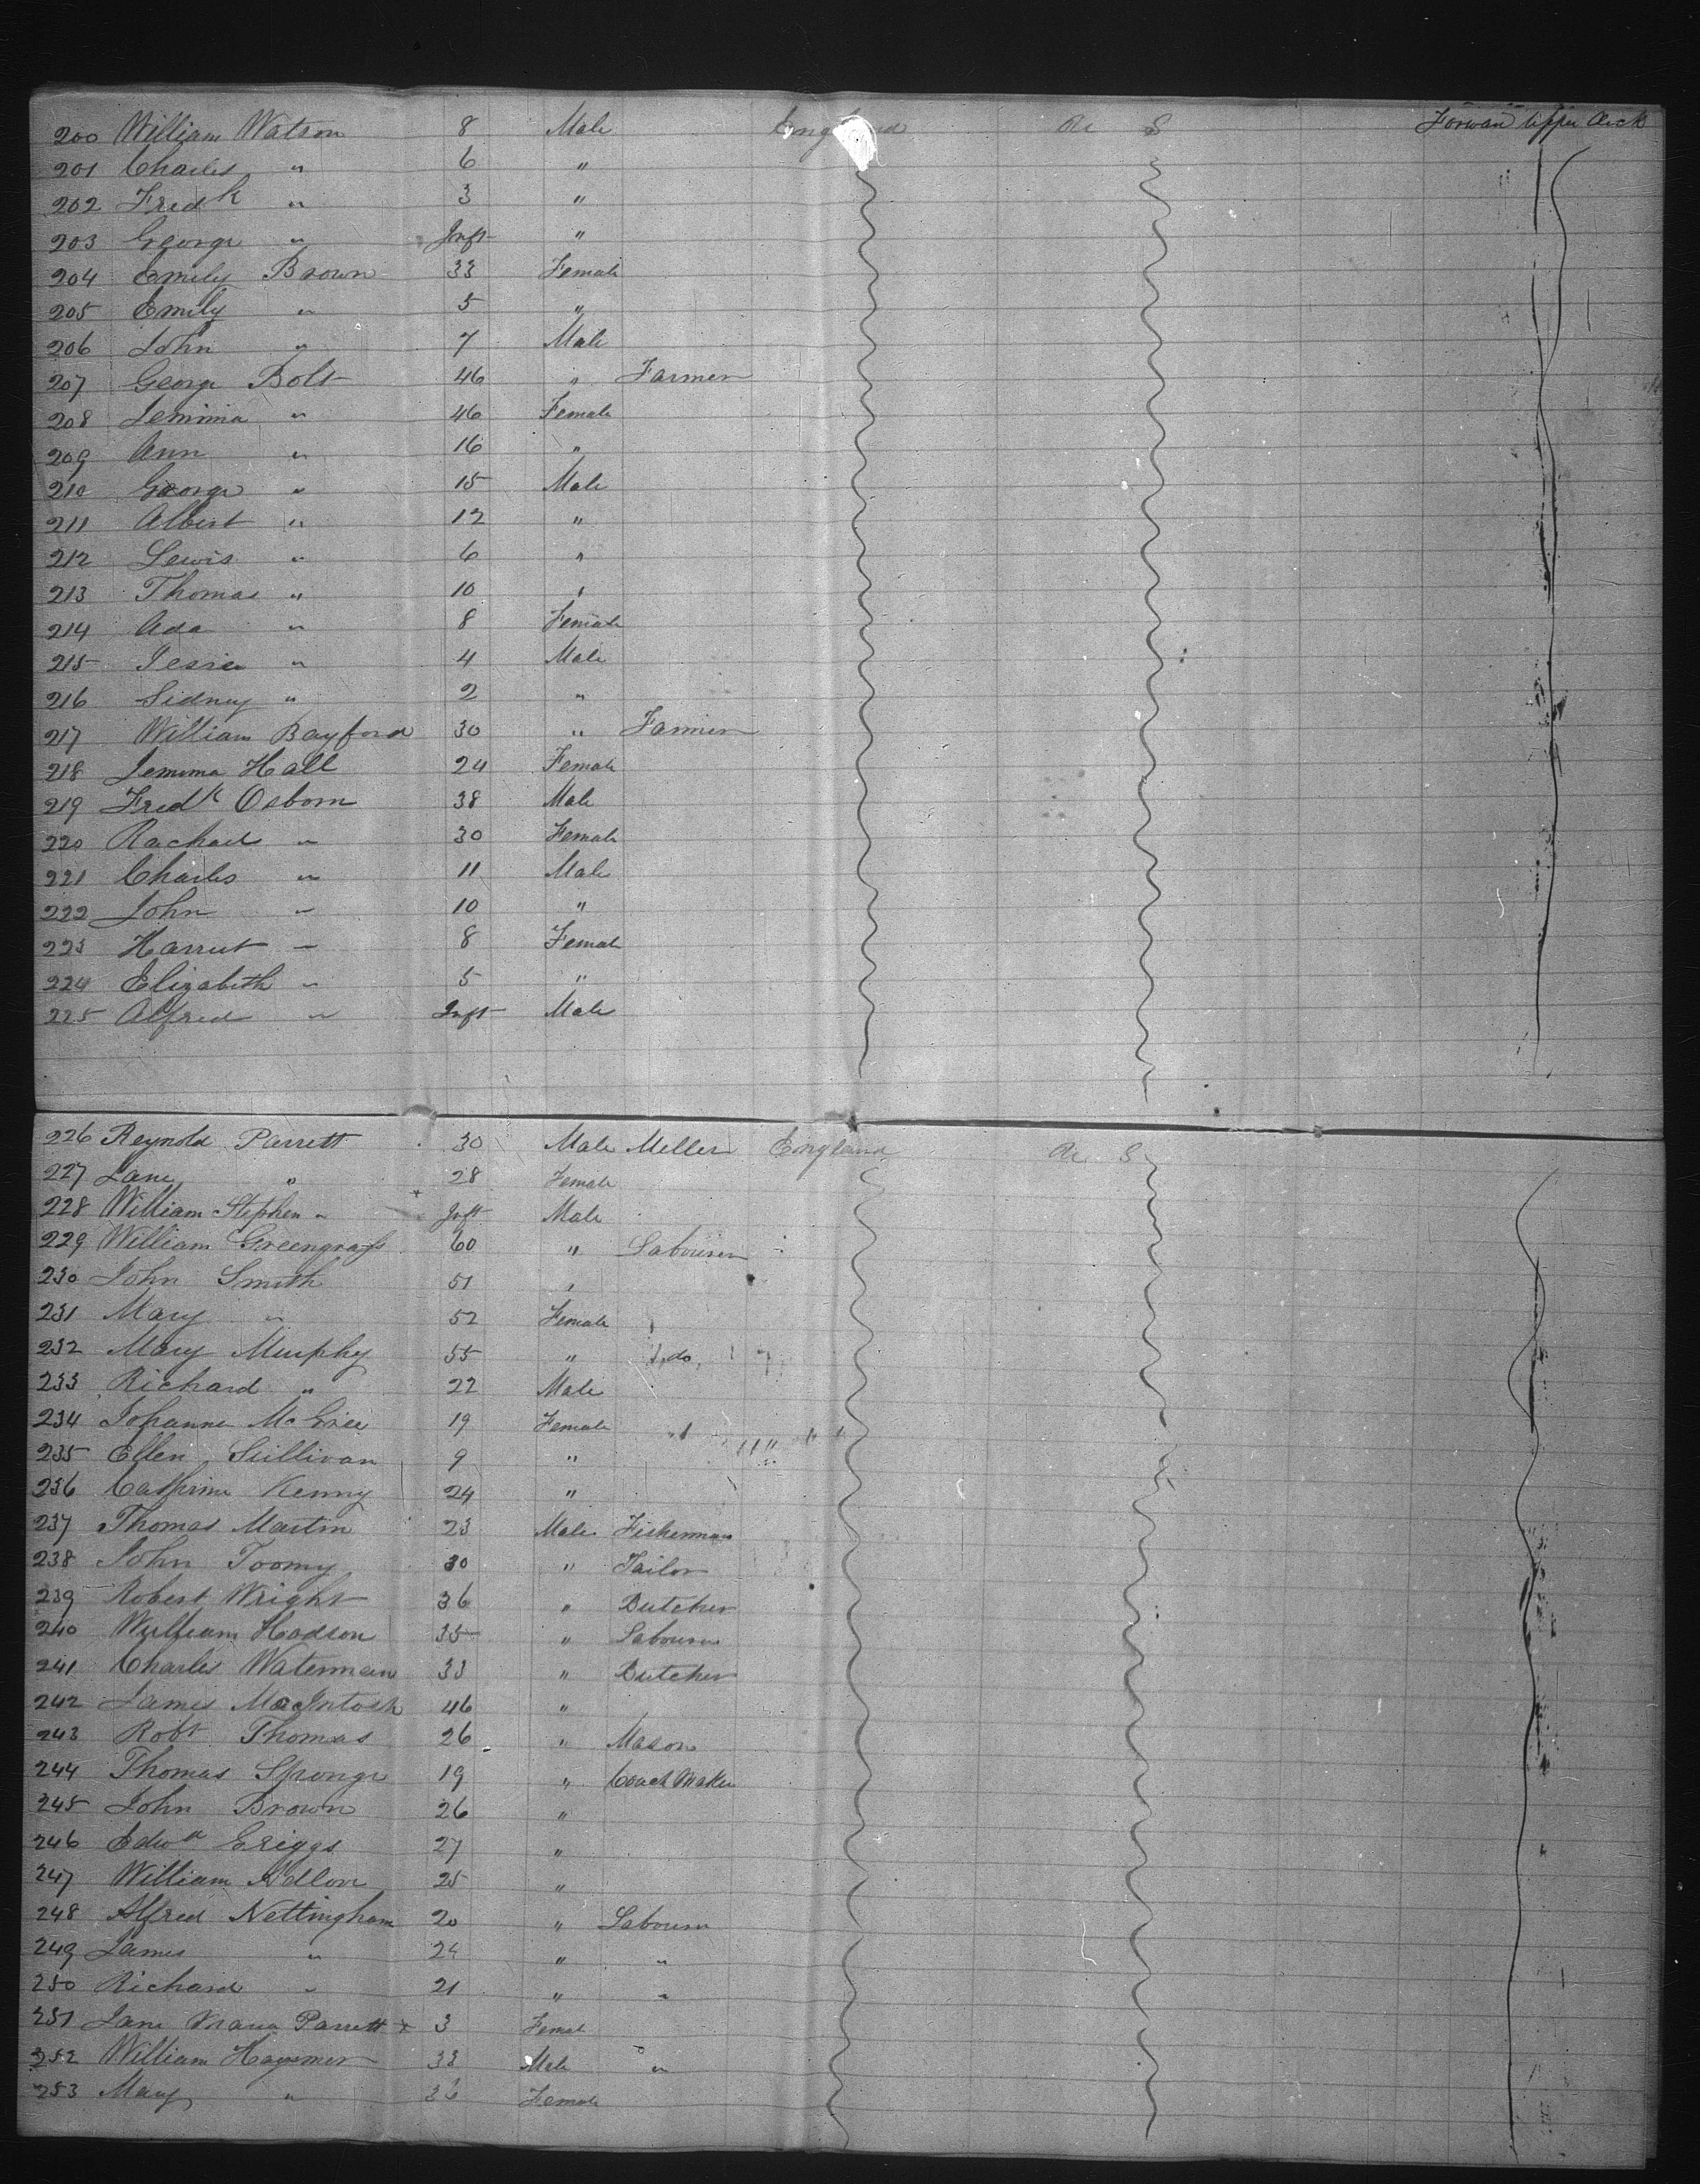 200 William Watson 8 Male England U S Forwar Upper Deck
201 Charles " 6 "
202 Fredk " 3 "
203 George " Inft "
204 Emily Brown 33 Female
205 Emily " 5 "
206 John " 7 Male
207 George Bolt 46 " Farmer
208 Jemima " 46 Female
209 Ann " 16 "
210 George " 15 Male
211 Albert " 12 "
212 Lewis " 6 "
213 Thomas " 10 "
214 Ada " 8 Female
215 Jessie " 4 Male
216 Sidney " 2 "
217 William Bayford 30 " Farmer
218 Jemima Hall 24 Female
219 Fredk Osborn 38 Male
220 Rachael " 30 Female
221 Charles " 11 Male
222 John " 10 "
223 Harriet " 8 Female
224 Elizabeth " 5 "
225 Alfred " Inft Male
226 Reynold Parrett 30 Male Meller England U S
227 Jane " 28 Female
228 William Stephen " Inft Male
229 William Greengrass 60 " Labourer
230 John Smith 51 "
231 Mary " 52 Female
232 Mary Murphy 55 " do
233 Richard " 22 Male
234 Johanne 19 Female
235 Ellen Sullivan 9 "
236 Cathrine Kenny 24 "
237 Thomas Martin 23 Male Fisherman
238 John Toomy 30 " Tailor
239 Robert Wright 36 " Butcher
240 William Hodson 35 " Labourer
241 Charles Waterman 33 " Butcher
242 James MacIntosh 46 "
243 Robt Thomas 26 " Mason
244 Thomas Sponge 19 " Coach Maker
245 John Brown 26 "
246 Edwd Griggs 27 "
247 William 25 "
248 Alfred Nettingham 20 " Labourer
249 James " 24 " "
250 Richard " 21 " "
251 Jane Maria Parrett x 3 Femal
252 William Haymer 38 Male "
253 Mary " 36 Female